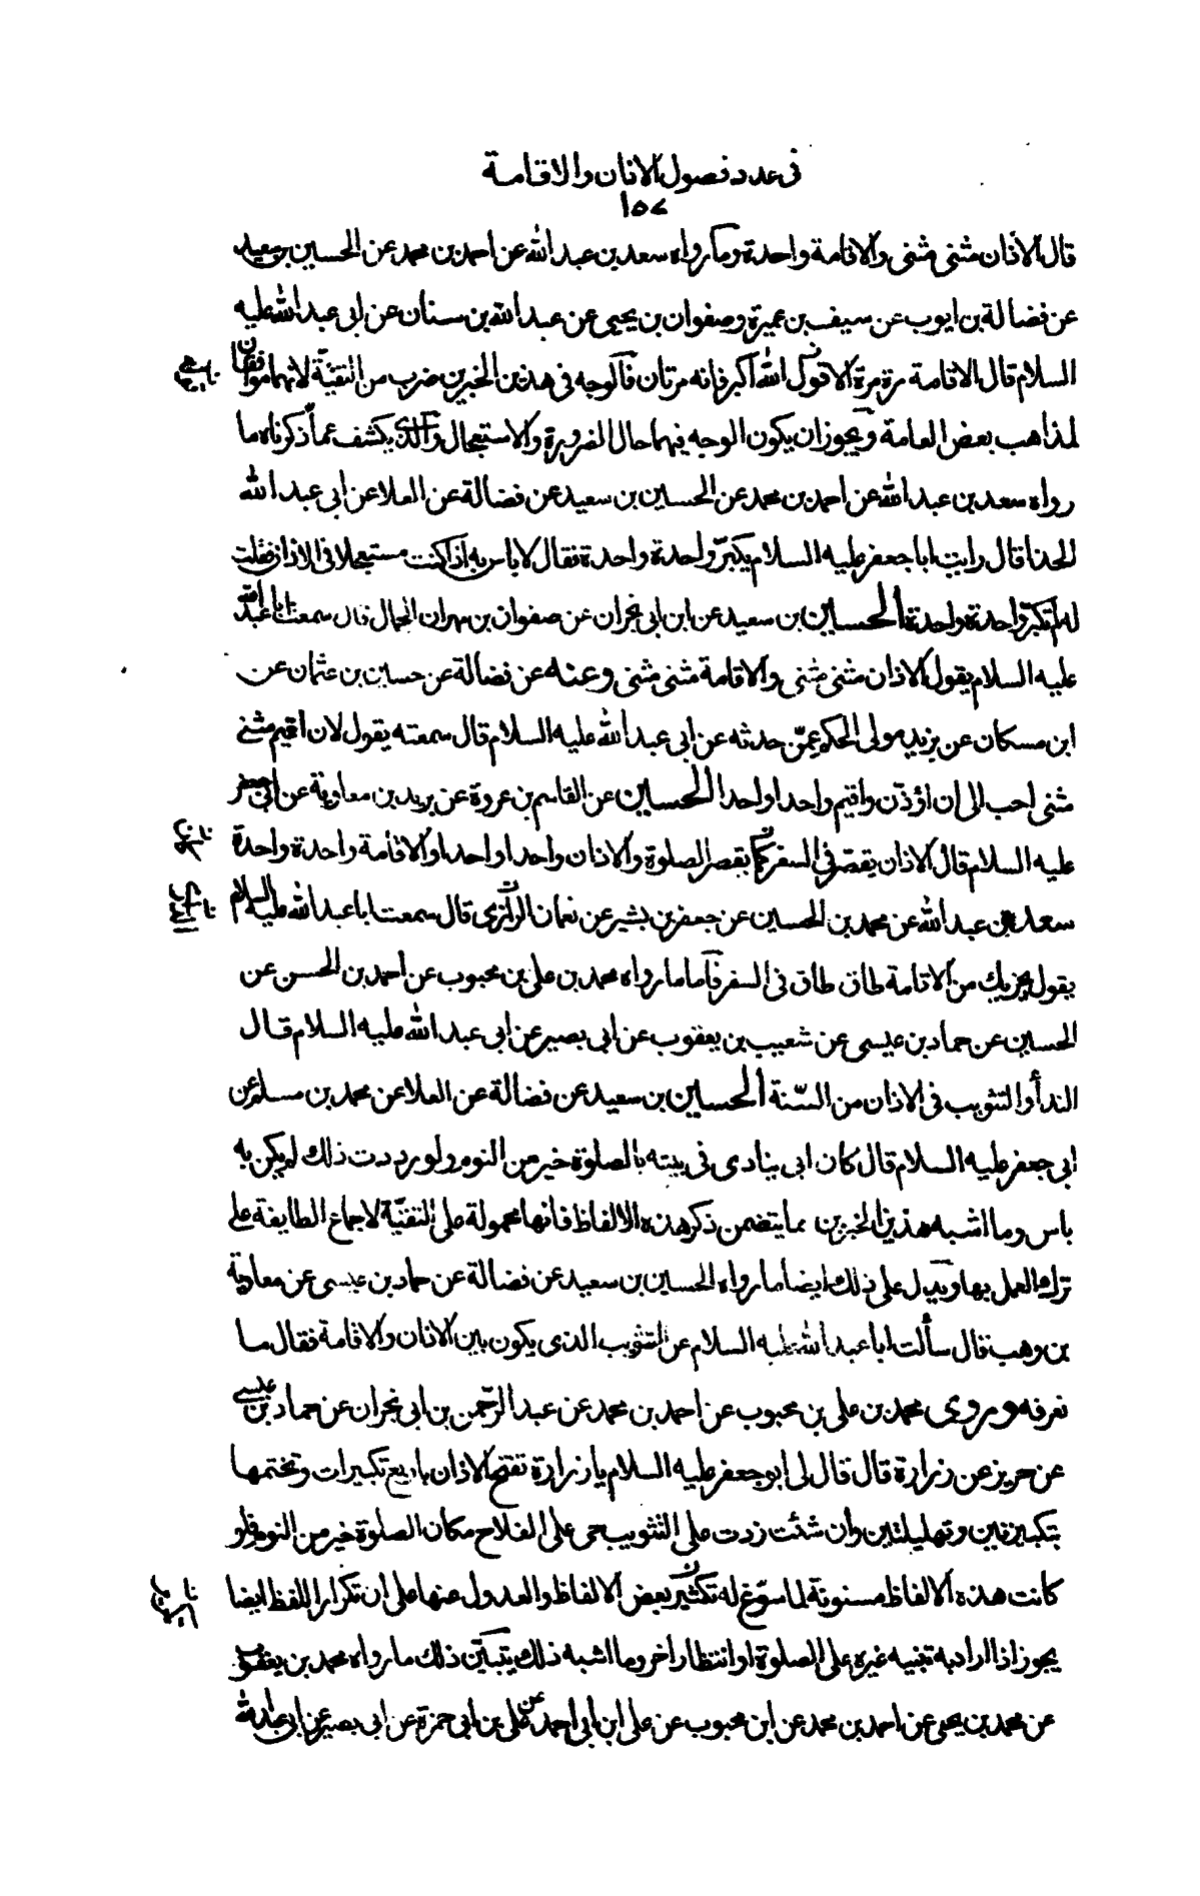 في عدد فصول الاذان والاقامة
١٥٧
قال الاذان مثنى مثنى والاقامة واحدة وما رواه سعد بن عبد الله عن احمد بن محمد عن الحسين بن سعيد
عن فضالة بن ايوب عن سيف بن عميرة وصفوان بن يحيى عن عبد الله بن سنان عن ابى عبد الله عليه
السلام قال الاقامة مرة مرة الا قول الله اكبر فانه مرتان فالوجه فى هذين الخبرين ضرب من التقيّة لانهما موافقان
لمذاهب بعض العامة ويجوز ان يكون الوجه فيهما حال الضرورة والاستعجال والذى يكشف عما ذكرناه ما
رواه سعد بن عبد الله عن احمد بن محمد عن الحسين بن سعيد عن فضالة عن العلا عن ابى عبد الله
الحذا قال رايت ابا جعفر عليه السلام يكبّر واحدة واحدة فقال لا باس به اذا كنت مستعجلا فى الاذان فقلت
له لم تكبّر واحدة واحدة الحسين بن سعيد عن ابن ابى نجران عن صفوان بن مهران الجمال قال سمعت ابا عبد الله
عليه السلام يقول الاذان مثنى مثنى والاقامة مثنى مثنى وعنه عن فضالة عن حسين بن عثمان عن
ابن مسكان عن يزيد مولى الحكم عمّن حدثه عن ابى عبد الله عليه السلام قال سمعته يقول لان اقيم مثنى
مثنى احب الى ان اؤذّن واقيم واحدا واحدا الحسين عن القاسم بن عروة عن بريد بن معاوية عن ابى جعفر
عليه السلام قال الاذان يقصّر فى السفر كما يقصر الصلوة والاذان واحدا واحدا والاقامة واحدة واحدة
سعد بن عبد الله عن محمد بن الحسين عن جعفر بن بشير عن نعمان الرازى قال سمعت ابا عبد الله عليه السلام
يقول يجزيك من الاقامة طاق طاق فى السفر فاما ما رواه محمد بن على بن محبوب عن احمد بن الحسن عن
الحسين عن حماد بن عيسى عن شعيب بن يعقوب عن ابى بصير عن ابى عبد الله عليه السلام قال
الندأ والتثويب فى الاذان من السّنة الحسين بن سعيد عن فضالة عن العلا عن محمد بن مسلم عن
ابى جعفر عليه السلام قال كان ابى ينادى فى بيته بالصلوة خير من النوم ولو رددت ذلك لم يكن به
باس وما اشبه هذين الخبرين مما يتضمن ذكر هذه الالفاظ فانها محمولة على التقيّة لاجماع الطايفة على
ترك العمل بها ويدل على ذلك ايضا ما رواه الحسين بن سعيد عن فضالة عن حماد بن عيسى عن معاوية
بن وهب قال سألت ابا عبد الله عليه السلام عن التثويب الذى يكون بين الاذان والاقامة فقال ما
نعرفه وروى محمد بن على بن محبوب عن احمد بن محمد عن عبد الرّحمن بن ابى نجران عن حماد بن عيسى
عن حريز عن زرارة قال قال لى ابو جعفر عليه السلام يا زرارة تفتح الاذان باربع تكبيرات وتختمها
بتكبيرتين وتهليلتين وان شئت زدت على التثويب حى على الفلاح مكان الصلوة خير من النوم فلو
كانت هذه الالفاظ مسنونة لما سوّغ له تكثير بعض الالفاظ والعدول عنها على ان تكرار اللفظ ايضا
يجوز اذا اراد به تنبيه غيره على الصلوة او انتظار اخر وما اشبه ذلك يتبيّن ذلك ما رواه محمد بن يعقوب
عن محمد بن يحيى عن احمد بن محمد عن ابن محبوب عن على ابن ابى احمد عن على بن ابى حمزة عن ابى بصير عن ابى عبد الله